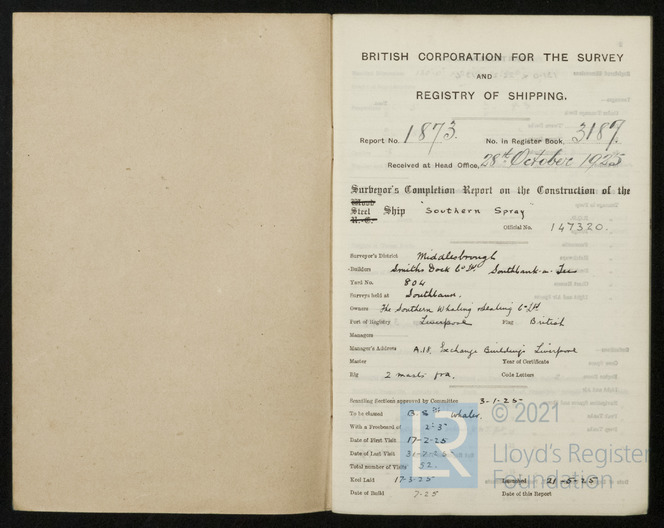 BRITISH CORPORATION FOR THE SURVEY
AND
REGISTRY OF SHIPPING.
Report No. 1873. No. in Register Book 3187.
Received at Head Office, 28th October 1925
Surveyor's Completion Report on the Construction of the
Wood
Steel Ship "Southern Spray"
R.-C.
Official No. 147320.
Surveyor's District Middlesbrough
Builders Smiths Dock Co Ld. Southbank-on-Tees
Yard No. 804
Surveys held at Southbank.
Owners The Southern Whaling & Sealing Co Ld
Port of Registry Liverpool Flag British
Managers
Manager's Address A.18, Exchange Buildings Liverpool
Master Year of Certificate
Rig 2 masts fra. Code Letters
Scantling Sections approved by Committee 3-1-25
To be classed B.S* Whaler.
With a Freeboard of 2'-3"
Date of First Visit 17-2-25
Date of Last Visit
Total number of Visits 52.
Keel Laid 17-3-25 Launched 21-5-25
Date of Build 7-25 Date of this Report
LR
© 2021
Lloyd's Register
Foundation